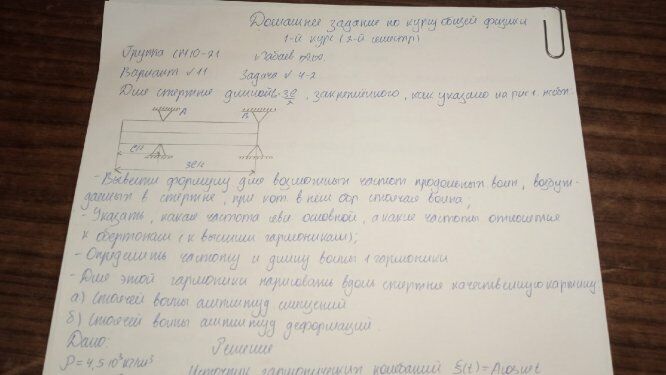 Домашнее задание по курсу общей физики
1-й курс (2-й семестр)
Группа 10-21
Вариант √ 11 Задача √ 4-2
Для стержня длиной, закреплённого, как указано на рис 1
A B
3l/4
- Вывести формулу для возможных частот продольных волн, возбуж-
даемых в стержне, при кот. в нём обр стоячая волна;
- Указать, какая частота явл основной, а какие частоты относятся
к обертонам (к высшим гармоникам);
- Определить частоту и длину волны 1 гармоники
- Для этой гармоники нарисовать вдоль стержня качественную картину
а) стоячей волны амплитуд смещений
б) стоячей волны амплитуд деформаций.
Дано: Решение
ρ = 4,5·10³ кг/м³ Источник гармонических колебаний ξ(t) = A cos ωt